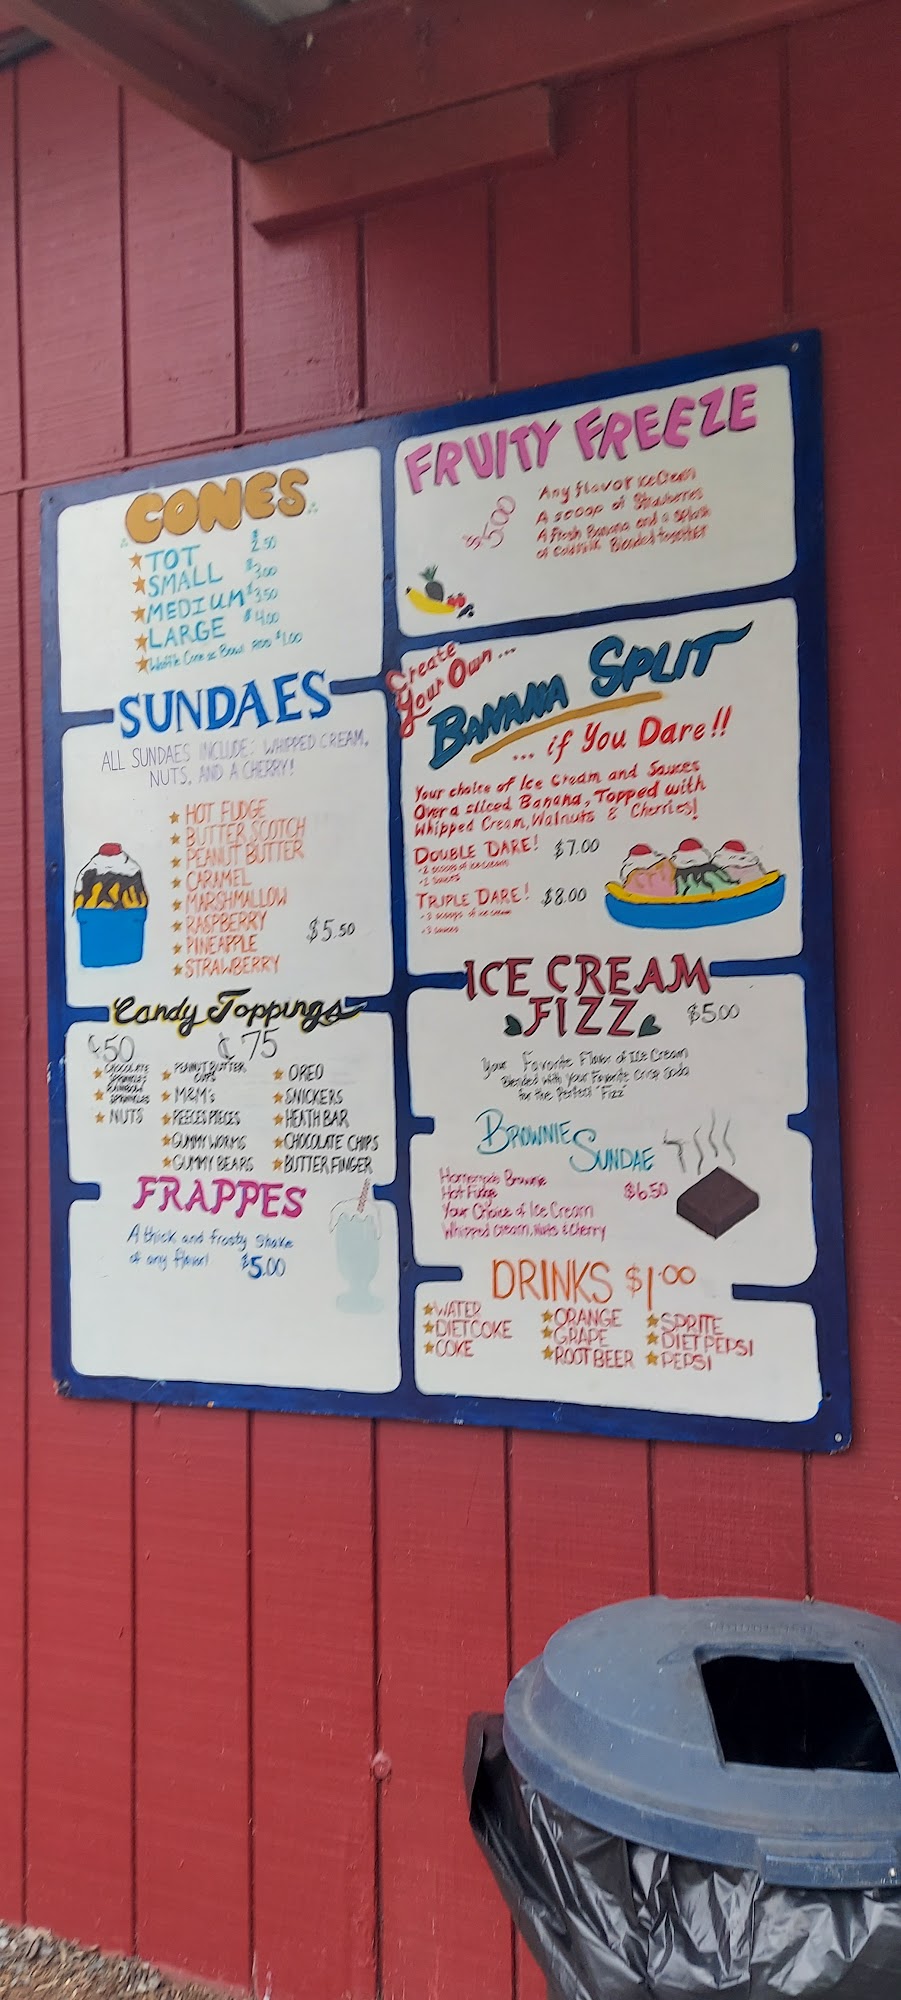 CONES
TOT $2.50
SMALL $3.00
MEDIUM $3.50
LARGE $4.00
Waffle Cone or Bowl ADD $1.00
SUNDAES
ALL SUNDAES INCLUDE: WHIPPED CREAM,
NUTS, AND A CHERRY!
HOT FUDGE
BUTTER SCOTCH
PEANUT BUTTER
CARAMEL
MARSHMALLOW
RASPBERRY
PINEAPPLE
STRAWBERRY
$5.50
Candy Toppings
¢50
CHOCOLATE
SPRINKLES
RAINBOW
SPRINKLES
NUTS
¢75
PEANUT BUTTER
CUPS
M&M's
REECES PIECES
GUMMY WORMS
GUMMY BEARS
OREO
SNICKERS
HEATH BAR
CHOCOLATE CHIPS
BUTTERFINGER
FRAPPES
A thick and frosty shake
of any flavor! $5.00
FRUITY FREEZE
$5.00
Any flavor Ice Cream
A scoop of Strawberries
A fresh Banana and a splash
of cold milk Blended together
Create
Your Own...
BANANA SPLIT
... if You Dare!!
Your choice of Ice Cream and Sauces
Over a sliced Banana, Topped with
Whipped Cream, Walnuts & Cherries!
DOUBLE DARE! $7.00
-2 scoops of ice cream
-2 sauces
TRIPLE DARE! $8.00
-3 scoops of ice cream
-3 sauces
ICE CREAM
FIZZ $5.00
Your Favorite Flavor of Ice Cream
Blended with Your Favorite crisp soda
for the Perfect "Fizz"
BROWNIE
SUNDAE
Homemade Brownie
Hot Fudge
Your Choice of Ice Cream
Whipped cream, Nuts & Cherry
$6.50
DRINKS $1.00
WATER
DIET COKE
COKE
ORANGE
GRAPE
ROOT BEER
SPRITE
DIET PEPSI
PEPSI